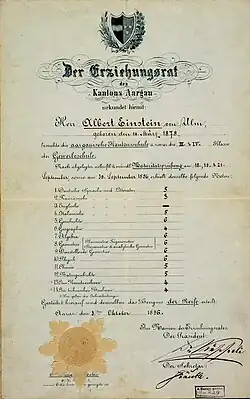 Der Erziehungsrat
des
Kantons Aargau
urkundet hiemit:
Herr Albert Einstein von Ulm,
geboren den 14. März 1879,
besuchte die aargauische Kantonsschule u. zwar die III. & IV. Klasse
der Gewerbeschule.
Nach abgelegter schriftl. & mündl. Maturitätsprüfung am 18., 19. & 21.
September, sowie am 30. September 1896, erhielt derselbe folgende Noten:
1. Deutsche Sprache und Litteratur 5
2. Französische 3
3. Englische —
4. Italienische 5
5. Geschichte 6
6. Geographie 4
7. Algebra 6
8. Geometrie 6
9. Darstellende Geometrie 6
10. Physik 6
11. Chemie 5
12. Naturgeschichte 5
13. Im Kunstzeichnen 4
14. Im technischen Zeichnen 4
Gestützt hierauf wird demselben das Zeugnis der Reife erteilt.
Aarau den 3ten Oktober 1896.
Im Namen des Erziehungsrates
Der Präsident
Der Sekretär